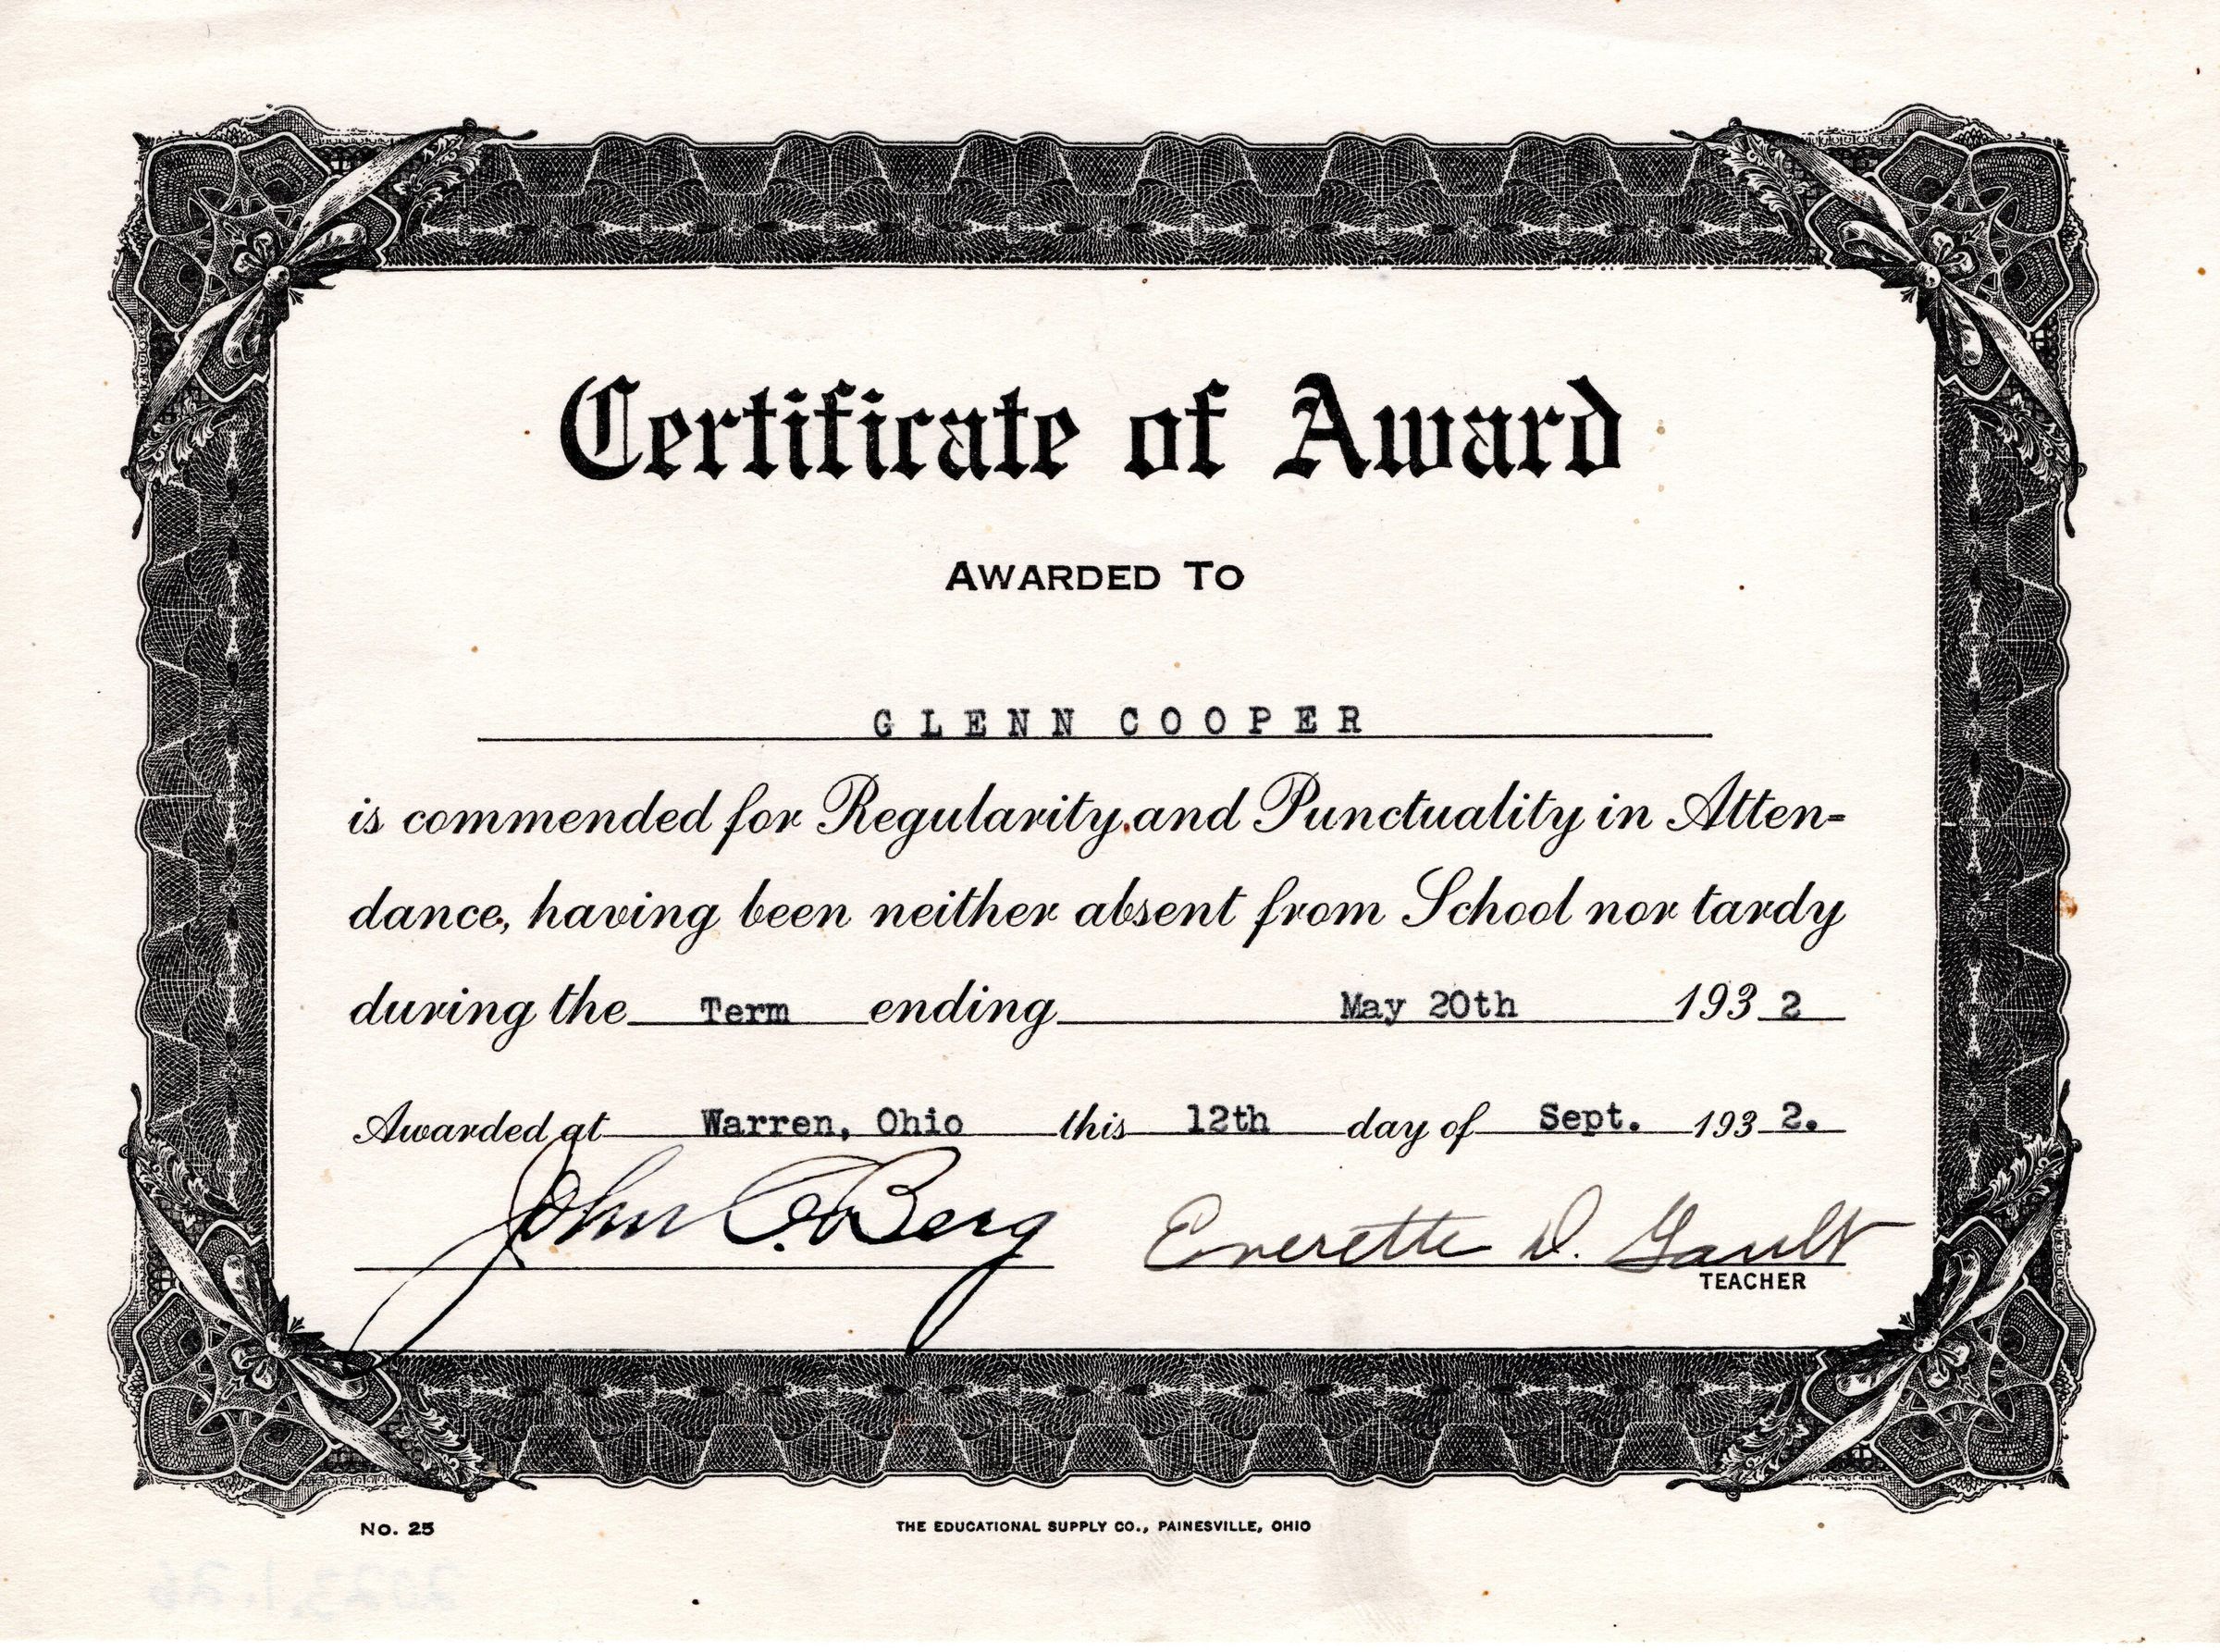 Certificate of Award
AWARDED TO
GLENN COOPER
is commended for Regularity and Punctuality in Atten-
dance, having been neither absent from School nor tardy
during the Term ending May 20th 1932
Awarded at Warren, Ohio this 12th day of Sept. 1932.
John C. Berg Everette D. Gault
TEACHER
No. 25 THE EDUCATIONAL SUPPLY CO., PAINESVILLE, OHIO
2023.1.26